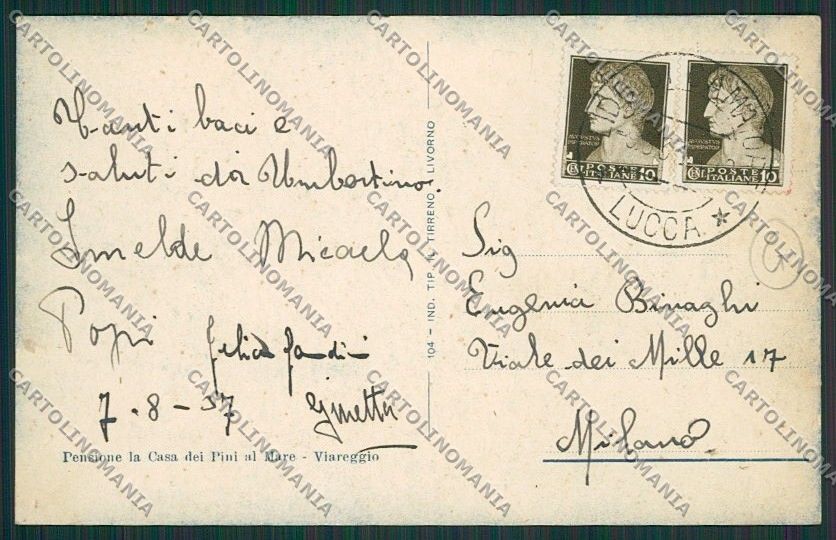 Tanti baci e
saluti da Umbertino.
Imelde Micaela
Popi
Ginetta
7.8-37
Pensione la Casa dei Pini al Mare - Viareggio
104 - IND. TIP. TIRRENO, LIVORNO
AUGUSTUS
IMPERATOR
POSTE
ITALIANE 10
AUGUSTUS
IMPERATOR
POSTE
ITALIANE 10
LUCCA
Sig
Eugenia Binaghi
Viale dei Mille 17
Milano
CARTOLINOMANIA